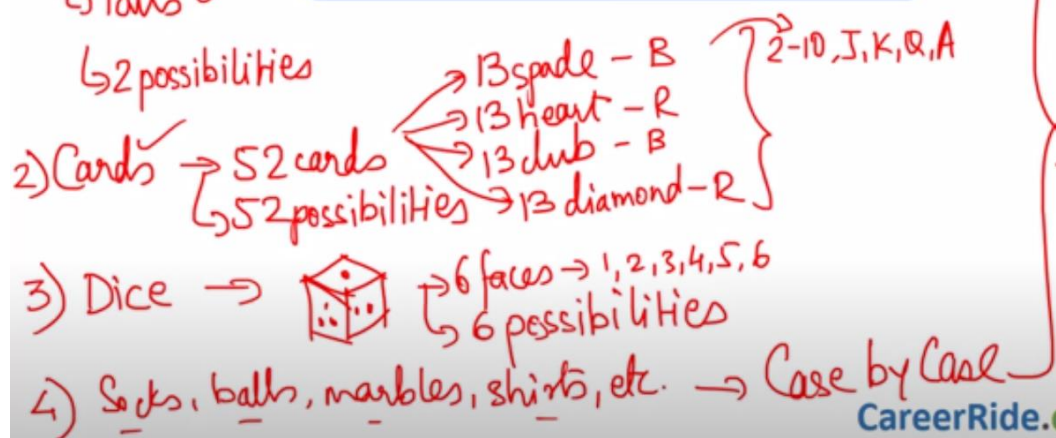 ↳2 possibilities
2) Cards ✓ → 52 cards
↳ 52 possibilities
→ 13 spade – B
→ 13 heart – R
→ 13 club – B
→ 13 diamond – R
2-10, J, K, Q, A
3) Dice → 6 faces → 1, 2, 3, 4, 5, 6
↳ 6 possibilities
4) Socks, balls, marbles, shirts, etc. → Case by Case
CareerRide.